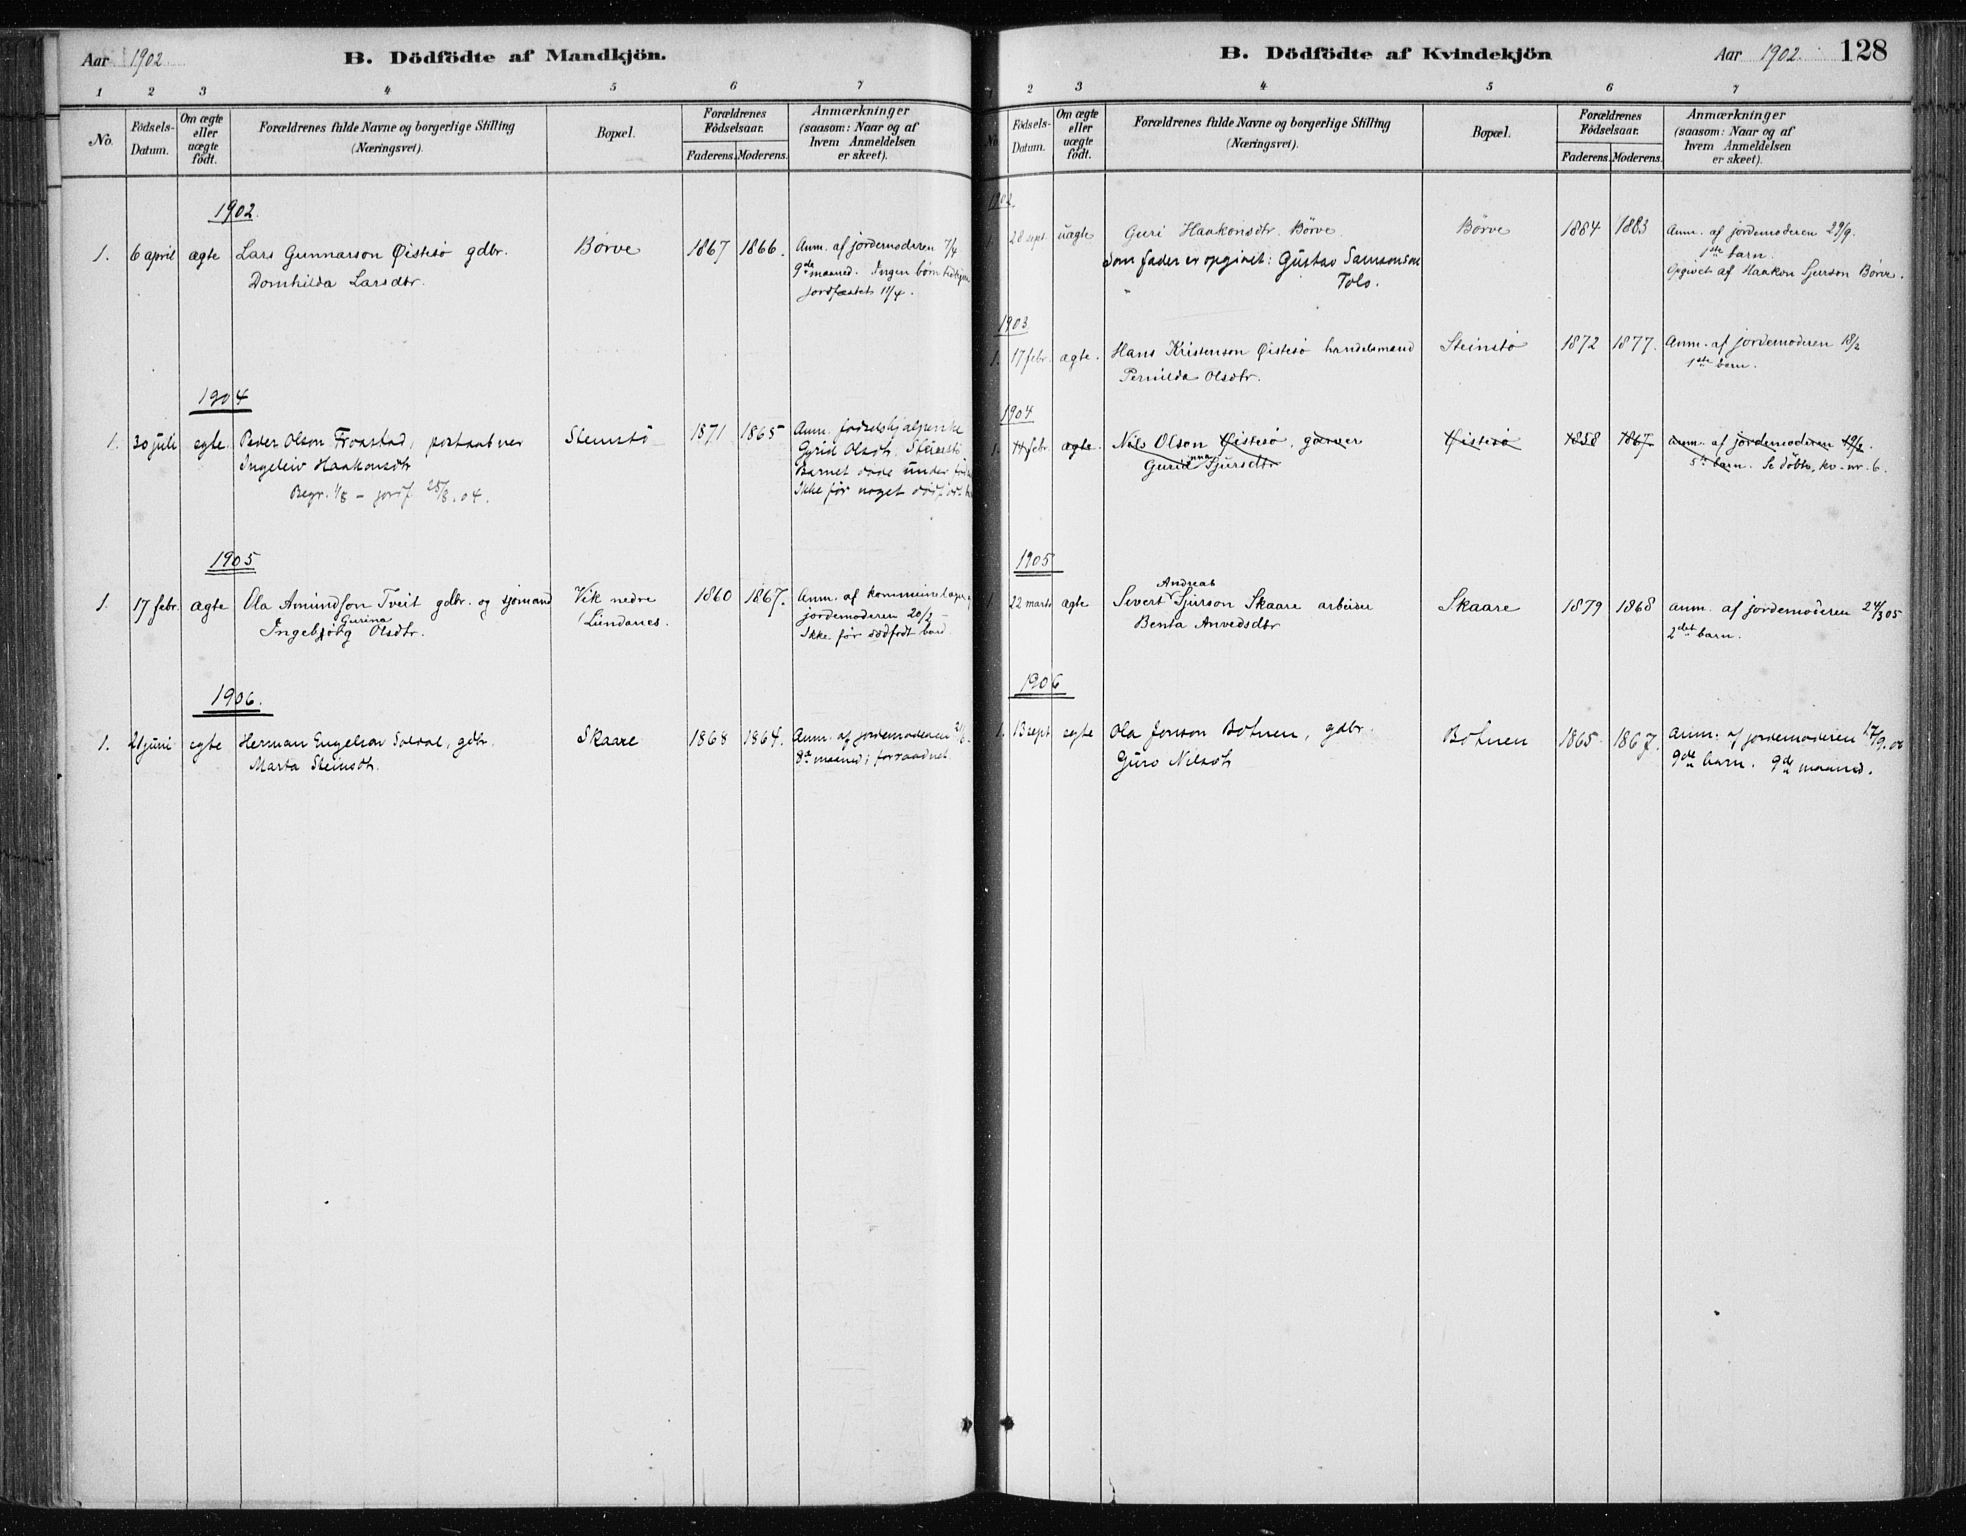 Aar 1902
B. Dödfödte af Mandkjön.
1 2 3 4 5 6 7
No.
Födsels-Datum.
Om ægte eller uægte födt.
Forældrenes fulde Navne og borgerlige Stilling
(Næringsvei).
Bopæl.
Forældrenes Födselsaar.
Faderens. Moderens.
Anmærkninger
(saasom: Naar og af
hvem Anmeldelsen
er skeet).
1902.
1. 6 april ægte Lars Gunnarson Øistesö gdbr. Börve 1867 1866. Anm. af jordemoderen 7/4
Domhilda Larsdtr. 9de maaned. Ingen børn tidligere
Jordfæstet 11/4.
1904
1. 30 juli egte. Peder Olson Froastad, postaabner Steinstö 1871 1865 Anm. fødselshjælperske
Ingeleiv Haakonsdtr Gyrid Olsdtr. Steinstö
Begr. 1/8 - jordf. 28/8.04. Barnet døde under
Ikke før noget dødfødt
1905
1. 17 febr. ægte Ola Amundson Tveit gdbr. og sjömand Vik nedre 1860 1867. Anm. af
Ingebjörg Gurina Olsdtr. (Lundanes. jordemoderen 20/2
Ikke før dødfødt barn
1906.
1. 21 juni egte Herman Engelson Soldal, gdbr. Skaare 1868 1864. Anm. af jordemoderen 21/6
Marta Steinsdtr. 8de maaned; forraadnet
B. Dödfödte af Kvindekjön
Aar 1902. 128
1 2 3 4 5 6 7
No.
Födsels-Datum.
Om ægte eller uægte födt.
Forældrenes fulde Navne og borgerlige Stilling
(Næringsvei).
Bopæl.
Forældrenes Födselsaar.
Faderens. Moderens.
Anmærkninger
(saasom: Naar og af
hvem Anmeldelsen
er skeet).
1902
1. 28 sept. uægte Guri Haakonsdtr. Börve. Börve 1884 1883 Anm. af jordemoderen 29/9.
Som fader er opgivet: Gustav Samsonson 1ste barn.
Tolo. Opgivet af Haakon Sjurson Börve.
1903
1. 17 febr. ægte. Hans Kristenson Øistesö handelsmand Steinstö 1872 1877. Anm. af jordemoderen 18/2
Pernilda Olsdtr. 1ste barn.
1904
1. 11 febr. ægte. Nils Olson Øistesö, garver Øistesö 1858 1867 Anm. af jordemoderen 19/2.
Gurid Sjursdtr 5te barn. Se døbte, kv. nr. 6.
1905
1. 22 marts ægte Sivert Andreas Sjurson Skaare arbeider Skaare 1879 1868 Anm. af jordemoderen 24/3 05
Benta Anvedsdtr 2det barn.
1906
1. 13 sept. egte Ola Jonson Botnen, gdbr. Botnen 1865 1867. Anm. af jordemoderen 17/9.06
Guro Nilsdtr 9de barn. 9de maaned.